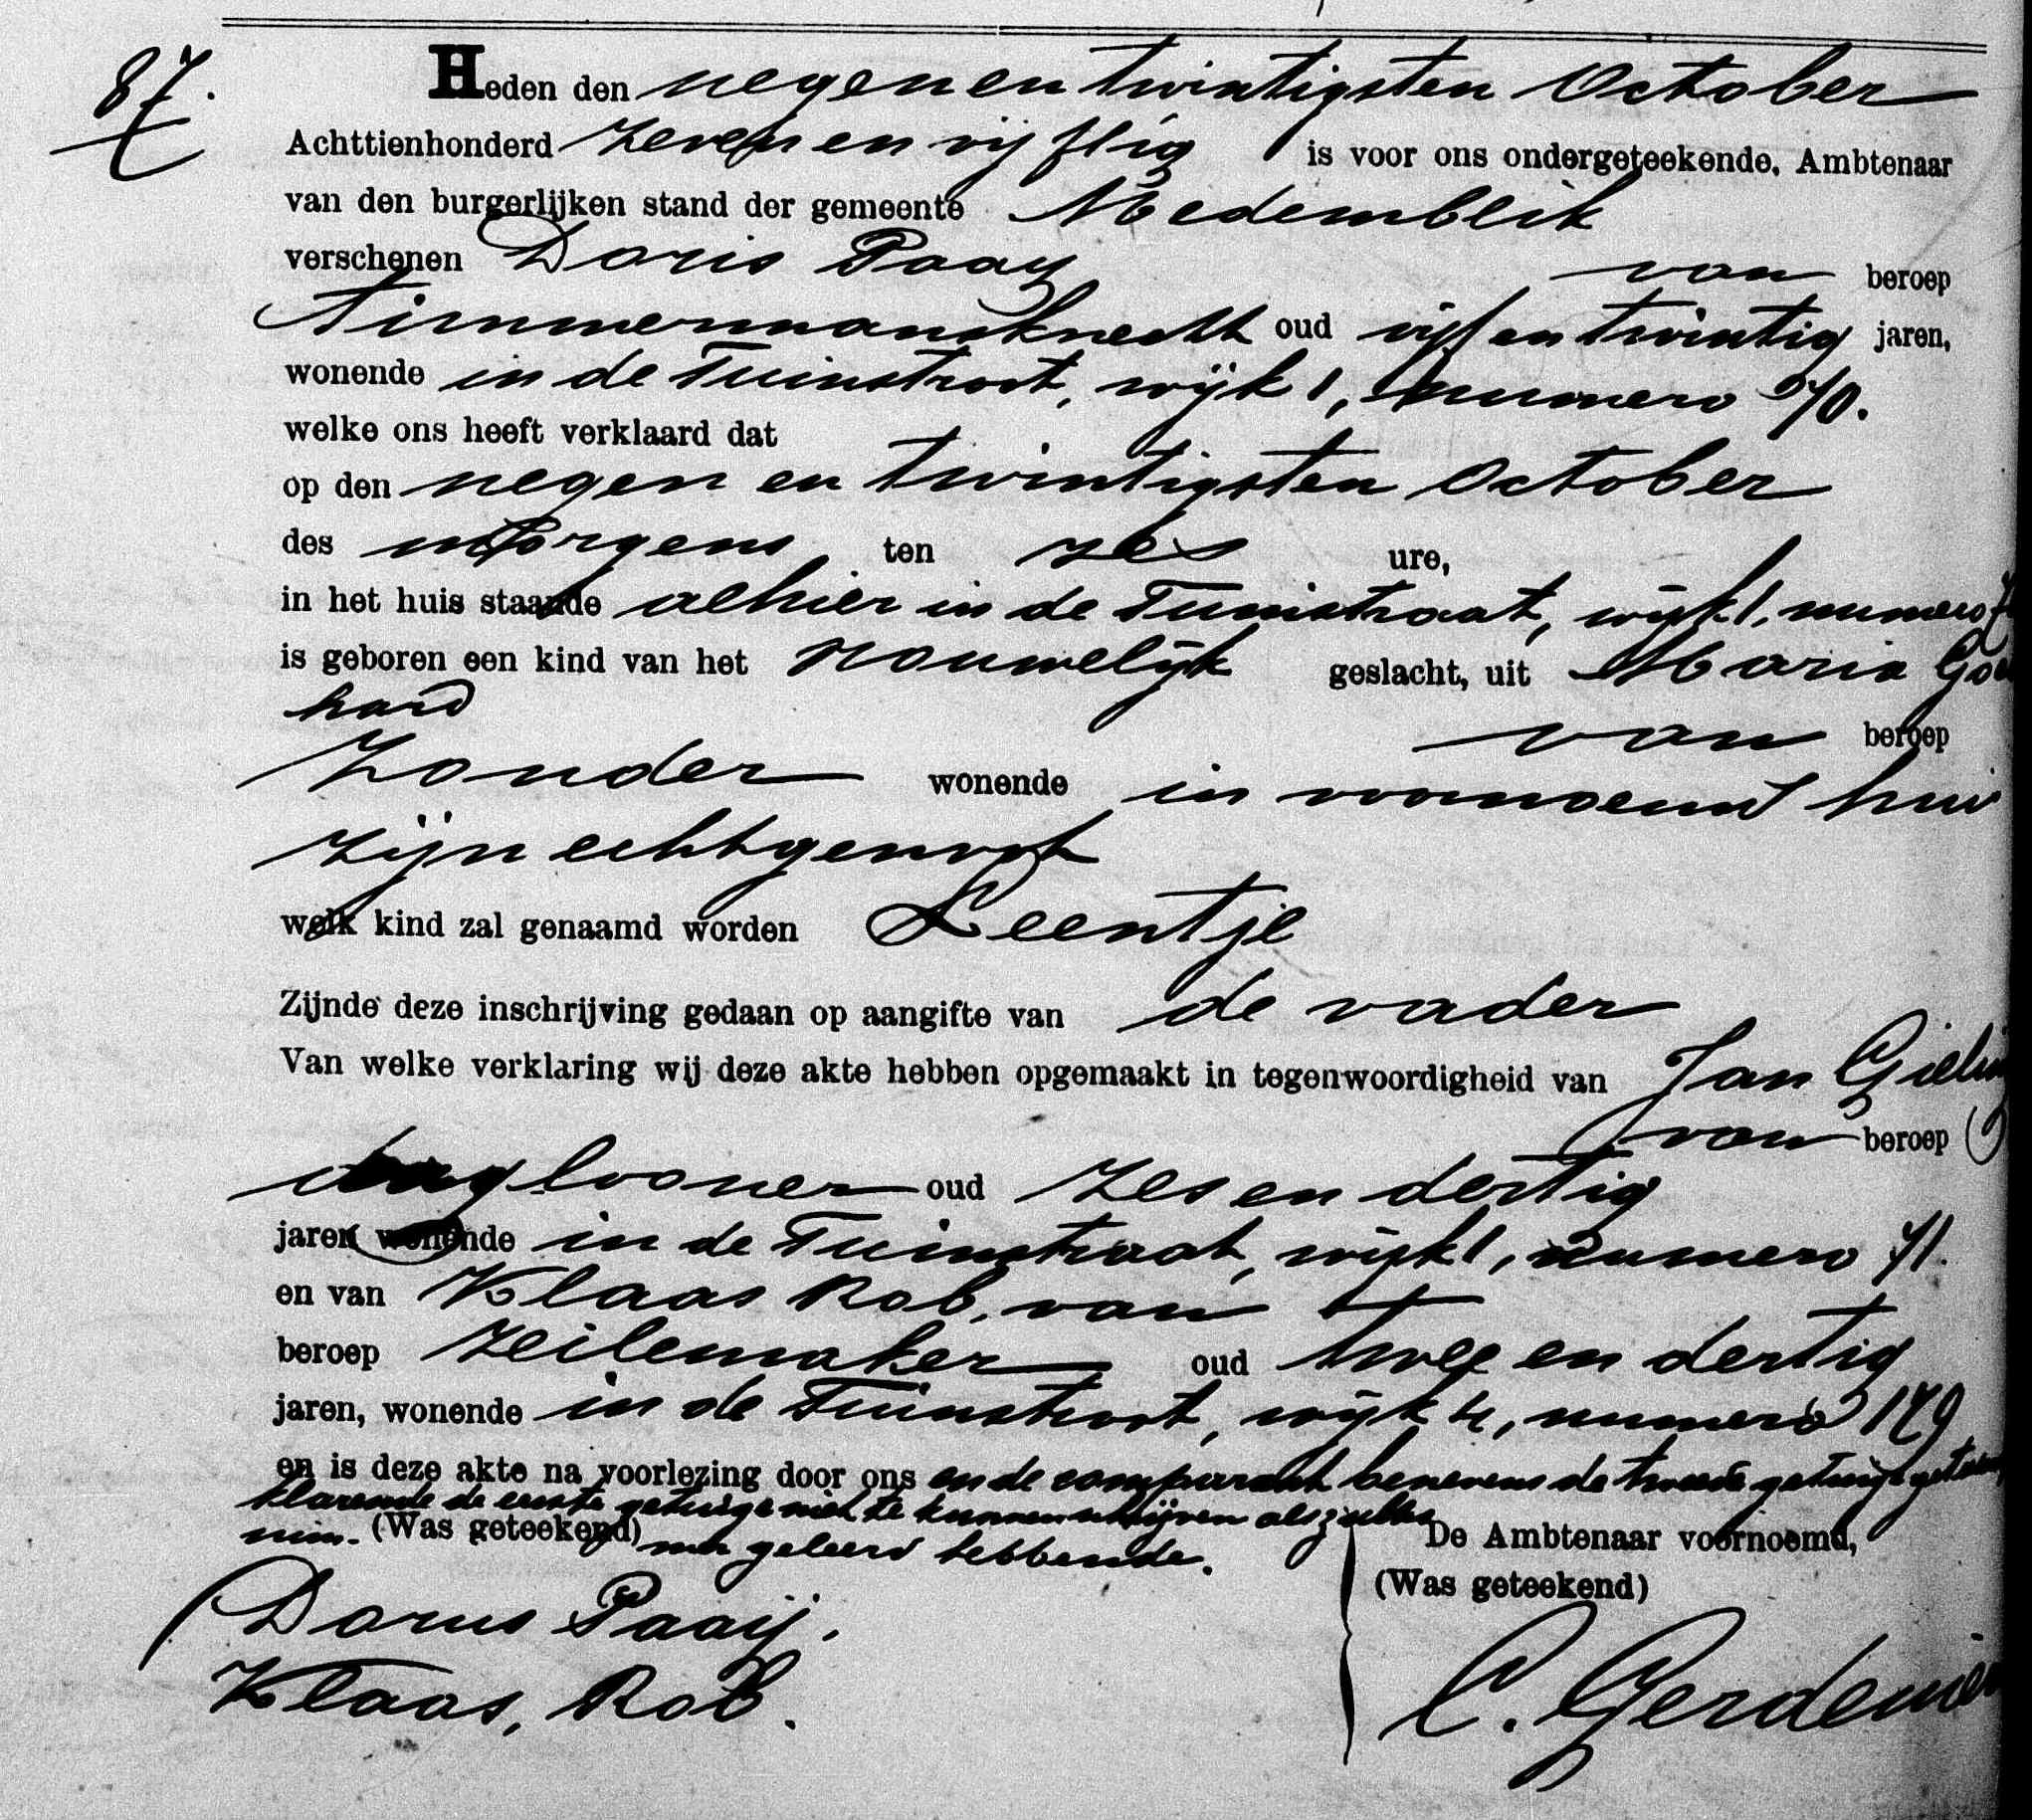 87.
Heden den negenen twintigsten October
Achttienhonderd zeven en vijftig is voor ons ondergeteekende, Ambtenaar
van den burgerlijken stand der gemeente Medemblik
verschenen Doris Paay van beroep
Timmermansknecht oud vijf en twintig jaren,
wonende in de Tuinstraat, wijk 1, numero 70.
welke ons heeft verklaard dat
op den negen en twintigsten October
des morgens ten zes ure,
in het huis staande alhier in de Tuinstraat, wijk 1, numero
is geboren een kind van het vrouwelijk geslacht, uit Maria
hard
van beroep
zonder wonende in voornoemd huis
zijn echtgenoot
welk kind zal genaamd worden Leentje
Zijnde deze inschrijving gedaan op aangifte van de vader
Van welke verklaring wij deze akte hebben opgemaakt in tegenwoordigheid van Jan
van beroep
daglooner oud zes en dertig
jaren wonende in de Tuinstraat, wijk 1, numero 71.
en van Klaas Rob, van
beroep zeilemaker oud twee en dertig
jaren, wonende in de Tuinstraat, wijk 4, numero 179
en is deze akte na voorlezing door ons en de comparant benevens de tweede getuige
klarende de eerste getuige niet te kunnen schrijven als zulks
(Was geteekend) geleerd hebbende.
De Ambtenaar voornoemd,
(Was geteekend)
Dorus Paaij.
Klaas, Rob.
C.